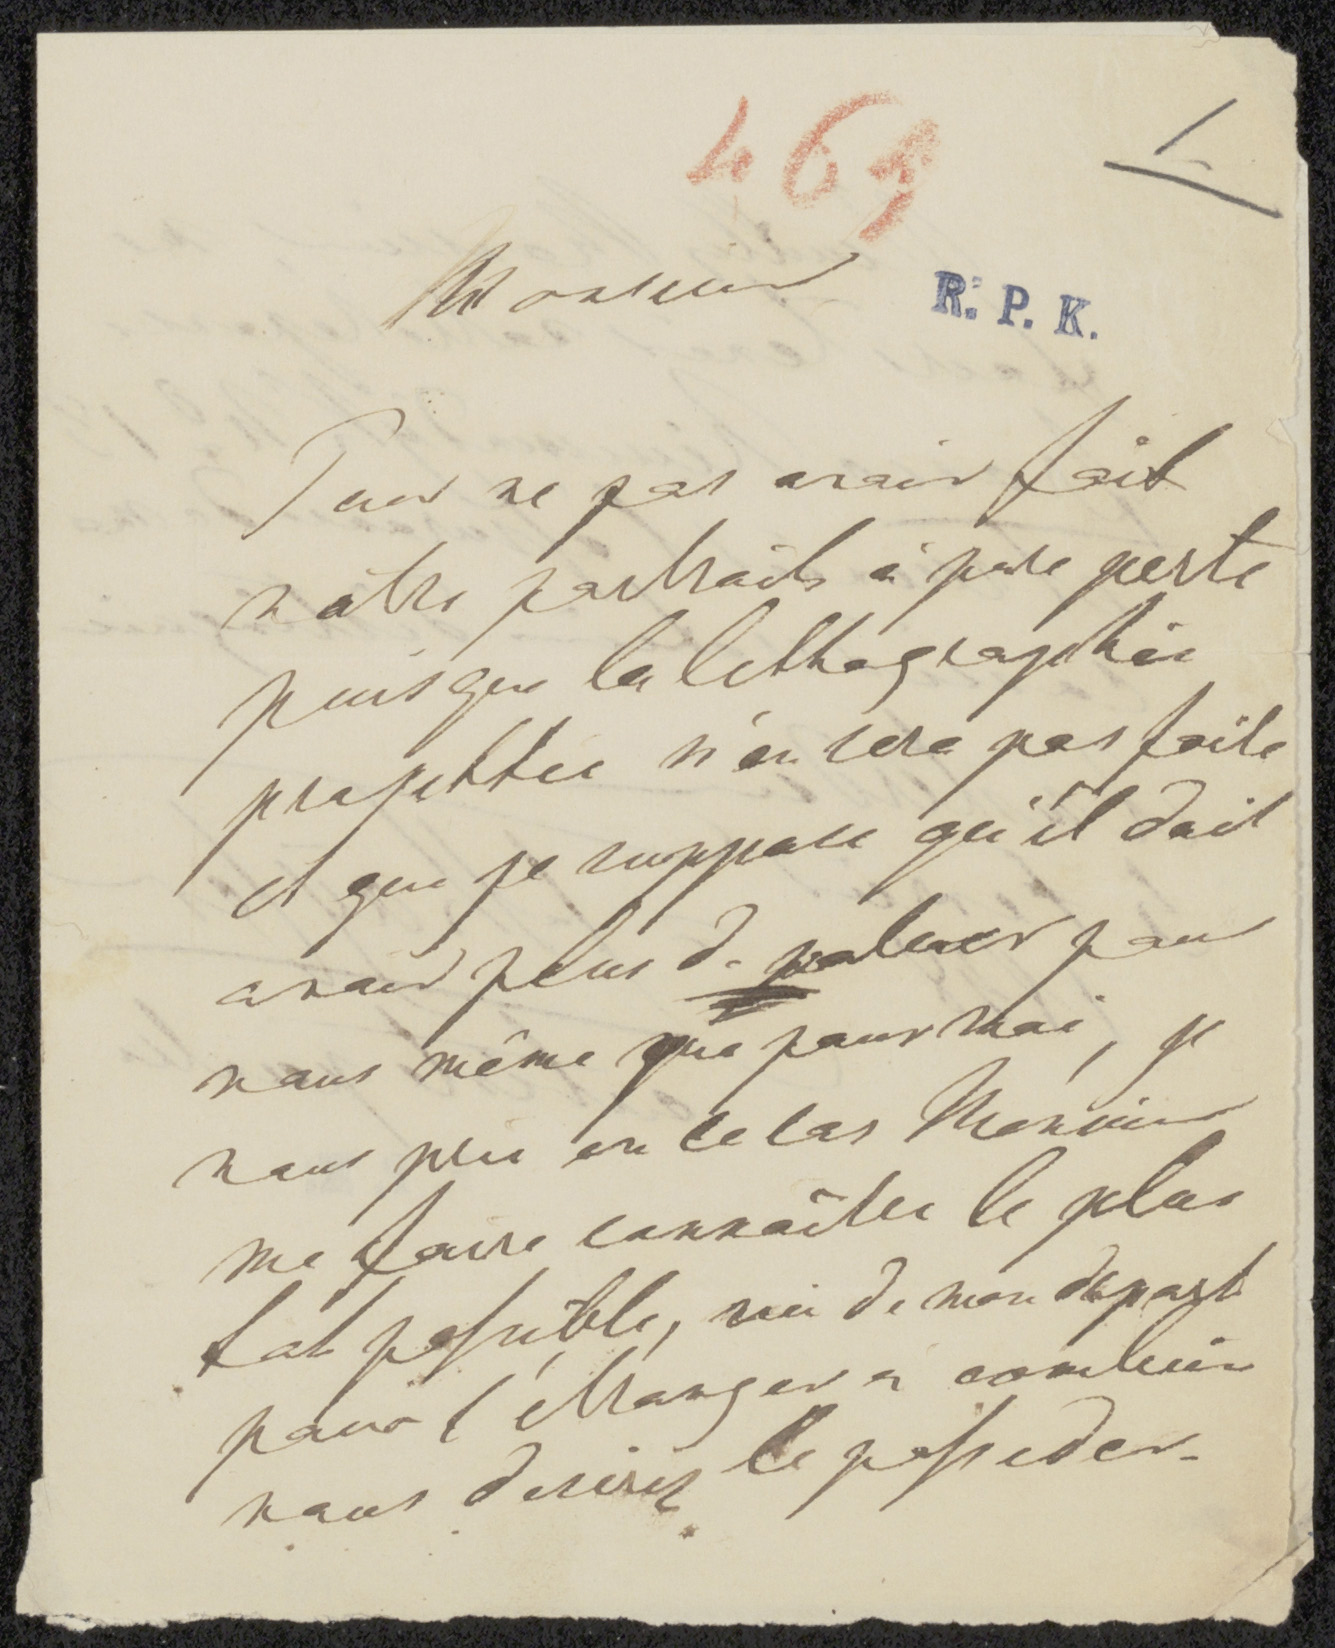 465
1
Monsieur
R. P. K.
Pour ne pas avoir fait
vôtre portrait à pure perte
puisque la lithographie
projettée n'en sera pas faite
et que je suppose qu'il doit
avoir plus de valeur pour
vous même que pour moi, je
vous prie en ce cas Monsieur
me faire connaître le plus
tot possible, vu de mon depart
pour l'étranger à combien
vous desirez le posseder.